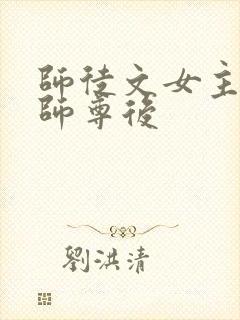 師徒文女主
師尊後
劉洪清